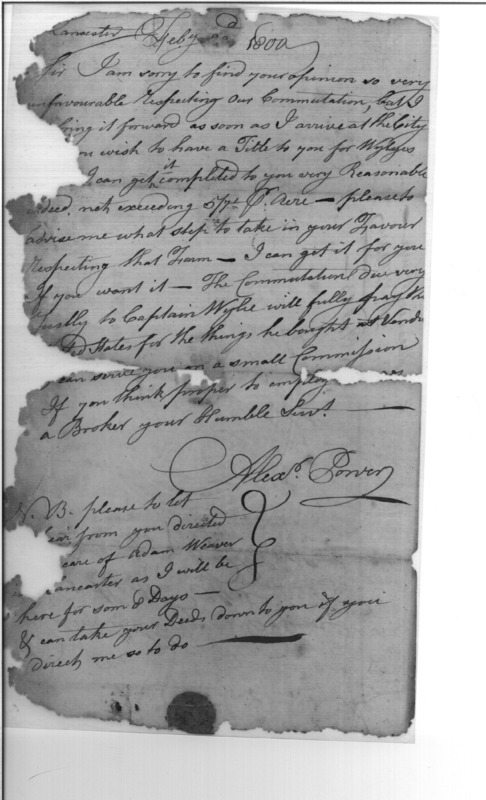 Lancaster Feby 2d 1800
Sir I am sorry to find your opinion so very
unfavourable Respecting Our Commutation, but I
bring it forward as soon as I arrive at the City
you wish to have a Title to you for Wylyes
I can get it completed to you very Reasonable
indeed, not exceeding Pr. Acre — please to
advise me what step to take in your Favour
Respecting that Farm — I can get it for you
If you want it — The Commutation Due very
to Captain Wylie will fully pay the
States for the things he bought at Vendu
can serve you on a small Commission
If you think proper to employ
a Broker your Humble Servt.
Alexr. Power
N. B. please to let
hear from you directed
care of Adam Weaver
Lancaster as I will be
here for som 8 Days —
& can take your Deeds down to you if you
direct me so to do